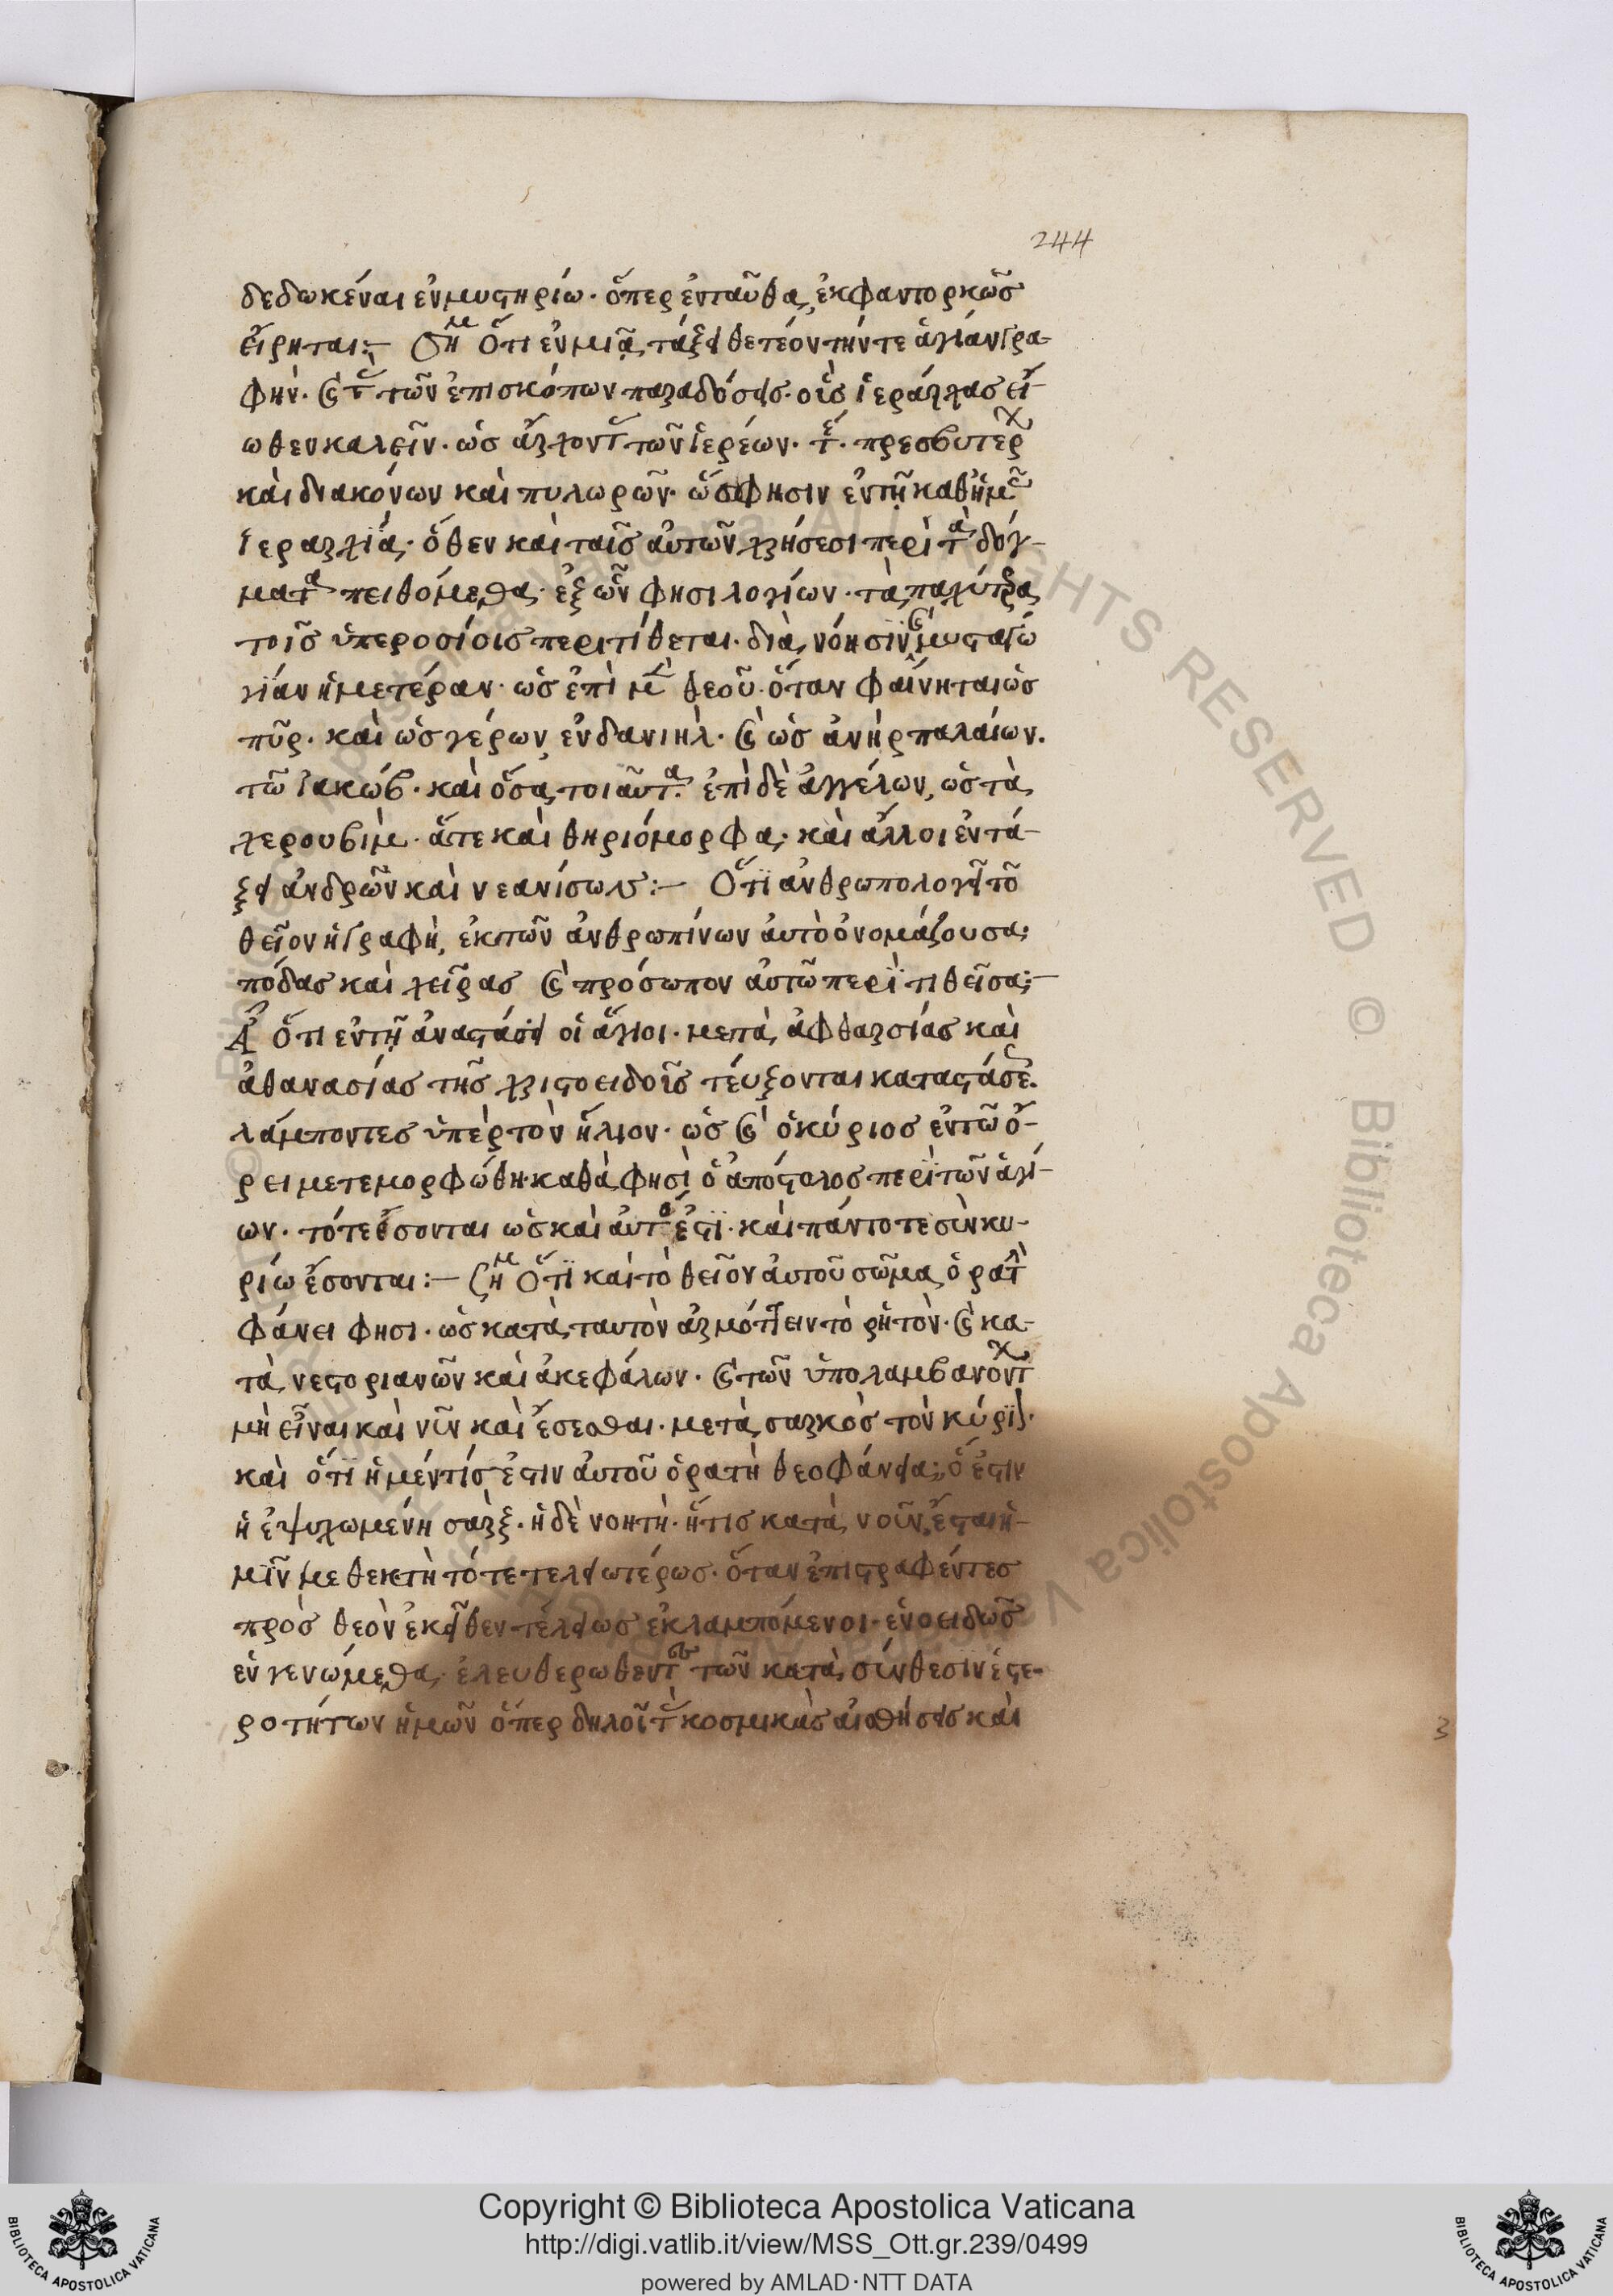 244
δεδωκέναι ἐν μυστηρίω· ὅπερ ἐνταῦθα ἐκφαντορκῶσ
εἴρηται:— Ση̅μ Ὅτι ἐν μιᾷ τάξει θετέον τήν τε ἁγίαν γρα-
φήν· καὶ τ̅ τῶν ἐπισκόπων παραδόσεισ· οὓσ ἱεράρχασ εἴ-
ωθεν καλεῖν· ὡσ ἄρχοντ̅ τῶν ἱερέων· τ̅ε· πρεσβυτέρ
καὶ διακόνων καὶ πυλωρῶν· ὥσ φησιν ἐν τῇ καθ ἡμ̅
ἱεραρχία· ὅθεν καὶ ταῖσ αὐτῶν χρήσεσι περὶ τὰ δόγ-
ματα πειθόμεθα· ἐξ ὧν φησι λογίων· τὰ παχύτρα
τοῖσ ὑπερουσίοισ περιτίθεται· διὰ νόησιν καὶ μυσταγω
γίαν ἡμετέραν· ὡσ ἐπὶ μ̅ θεοῦ· ὅταν φαίνηται ὡσ
πῦρ· καὶ ὡσ γέρων ἐν δανιηλ· καὶ ὡσ ἀνὴρ παλαίων·
τῶ ἰακώβ· καὶ ὅσα τοιαῦτα· ἐπὶ δὲ ἀγγέλων, ὡσ τὰ
χερουβὶμ· ἅτε καὶ θηριόμορφα· καὶ ἄλλοι ἐν τά-
ξει ἀνδρῶν καὶ νεανίσκων:— Ὅτι ἀνθρωπολογεῖ τὸ
θεῖον ἡ γραφὴ, ἐκ τῶν ἀνθρωπίνων αὐτὸ ὀνομάζουσα;
πόδασ καὶ χεῖρασ καὶ πρόσωπον αὐτῶ περιτιθεῖσα;—
Ὅτι ἐν τῇ ἀναστάσει οἱ ἅγιοι· μετὰ ἀφθαρσίασ καὶ
ἀθανασίασ τῆσ χριστοειδοῦσ τεύξονται καταστάσε·
λάμποντεσ ὑπὲρ τὸν ἥλιον· ὡσ καὶ ὁ κύριοσ ἐν τῶ ὄ-
ρει μετεμορφώθη· καθά φησὶ ὁ ἀπόστολοσ περὶ τῶν ἁγί-
ων· τότε ἔσονται ὡσ καὶ αὐτόσ ἐστι· καὶ πάντοτε σὺν κυ-
ρίω ἔσονται:— Ση̅μ Ὅτι καὶ τὸ θεῖον αὐτοῦ σῶμα ὁρατ̅
φάνει φησι· ὡσ κατὰ ταυτὸν ἁρμόττειν τὸ ῥητὸν· καὶ κα-
τὰ νεστοριανῶν καὶ ἀκεφάλων· καὶ τῶν ὑπολαμβανόντ̅
μὴ εἶναι καὶ νῦν καὶ ἔσεσθαι· μετὰ σαρκὸσ τὸν κύριον·
καὶ ὅτι ἡ μέν τίσ ἐστιν αὐτοῦ ὁρατὴ θεοφάνεια; ὅ ἐστιν
ἡ ἐψυχωμένη σάρξ· ἡ δὲ νοητὴ· ἥτισ κατὰ νοῦν ἔσται ἡ-
μῖν μεθεκτὴ τότε τελειωτέρωσ· ὅταν ἐπιστραφέντεσ
πρὸσ θεὸν ἐκεῖθεν τελείωσ ἐκλαμπόμενοι· ἑνοειδῶσ
ἓν γενώμεθα ἐλευθερωθέντ̅ τῶν κατὰ σύνθεσιν ἑτε-
ροτήτων ἡμῶν ὅπερ δηλοῖ τ̅ κοσμικὰσ αἰσθήσεισ καὶ
3
© Biblioteca Apostolica Vaticana ALL RIGHTS RESERVED
Copyright © Biblioteca Apostolica Vaticana
http://digi.vatlib.it/view/MSS_Ott.gr.239/0499
powered by AMLAD·NTT DATA
BIBLIOTECA APOSTOLICA VATICANA
BIBLIOTECA APOSTOLICA VATICANA